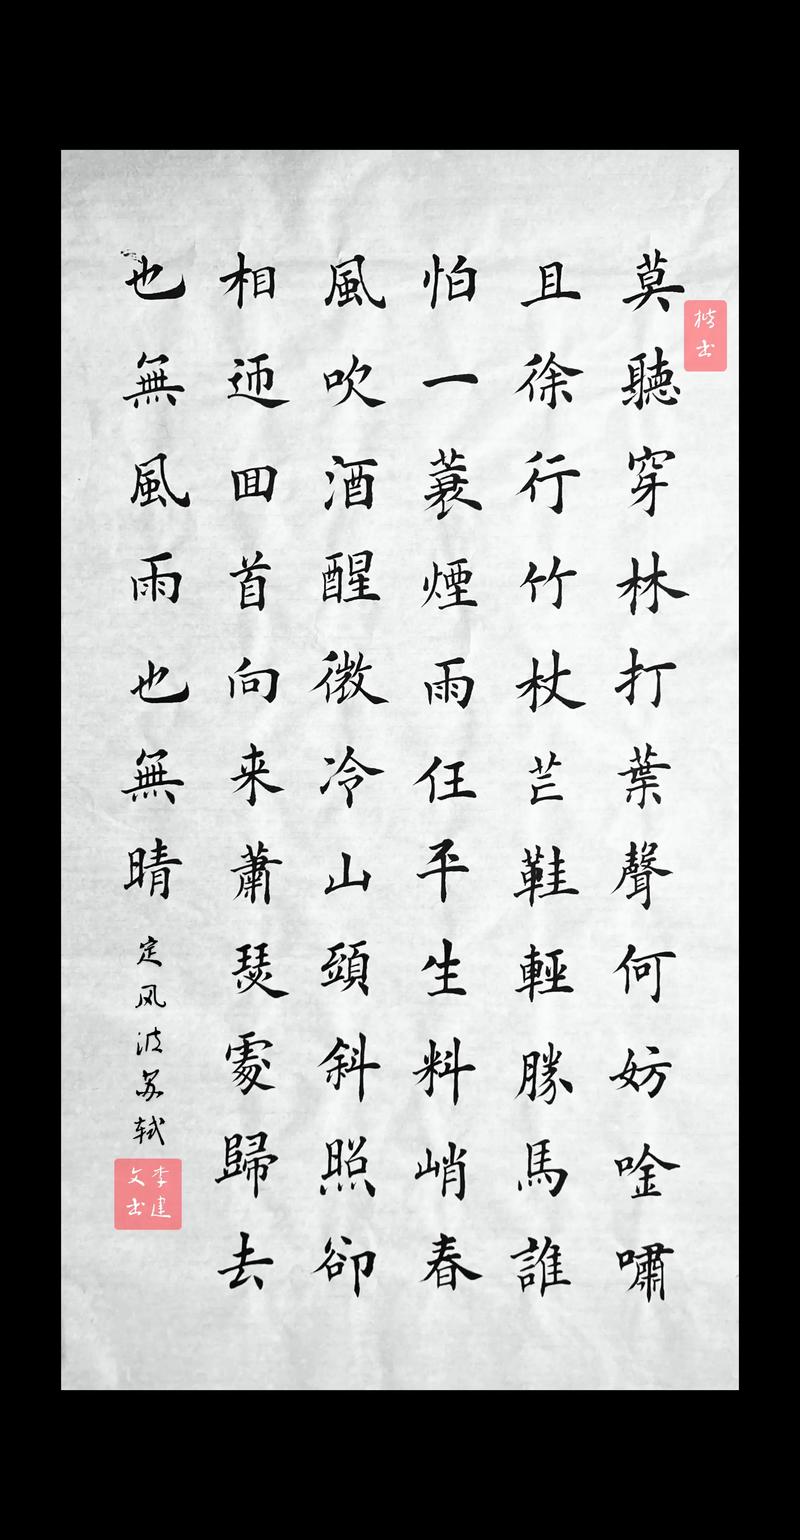 莫聽穿林打葉聲何妨唫嘯
且徐行竹杖芒鞋輕勝馬誰
怕一蓑煙雨任平生料峭春
風吹酒醒微冷山頭斜照卻
相迊回首向来蕭瑟處歸去
也無風雨也無晴
定风波苏轼
楷书
李建文书